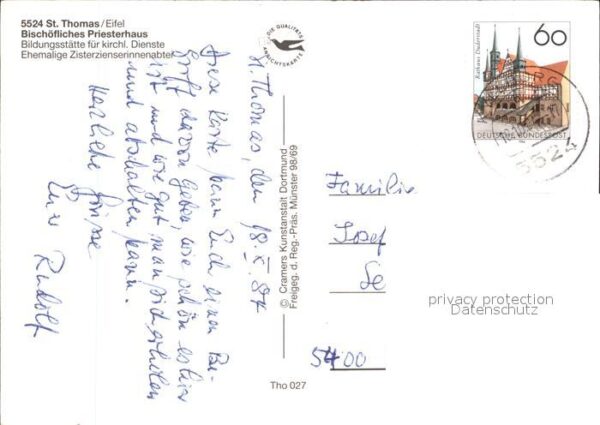 5524 St. Thomas/Eifel
Bischöfliches Priesterhaus
Bildungsstätte für kirchl. Dienste
Ehemalige Zisterzienserinnenabtei
DIE QUALITÄTS
ANSICHTSKARTE
St. Thomas, den 18.X.87
Diese Karte kann Euch einen Be-
griff davon geben, wie schön es hier
ist und wie gut man sich erholen
und abschalten kann.
Herzliche Grüsse
Euer Rudolf
© Cramers Kunstanstalt Dortmund
Freigeg. d. Reg.-Präs. Münster 98/69
Tho 027
60
Rathaus Duderstadt
DEUTSCHE BUNDESPOST
5524
Familie
Josef
5400
privacy protection
Datenschutz